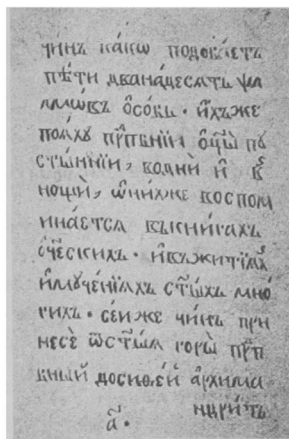 чи́нъ ка́кѡ подоба́етъ
пѣ́ти двана́десѧть ѱа
лмѡ́въ ѻ҆со́бь · и҆́хъже
поѧ́ху прⷣпбнїи ѻ҆тцы̀ пу
сты́ннїи, во дни̑ и҆ в
нощѝ, ѡ҆ ни́хже воспом
ина́етсѧ в кни́гахъ
ѻ҆те́ческихъ · и҆ въ житїѧ́хъ
и҆ муче́нїихъ ст҃ы́хъ мно́
гихъ · се́й же чи́нъ при
несѐ ѿ ст҃ы́ѧ горы̀ прⷣп
бный досиѳе́й а҆рхима
ндри́тъ
а҃ ·